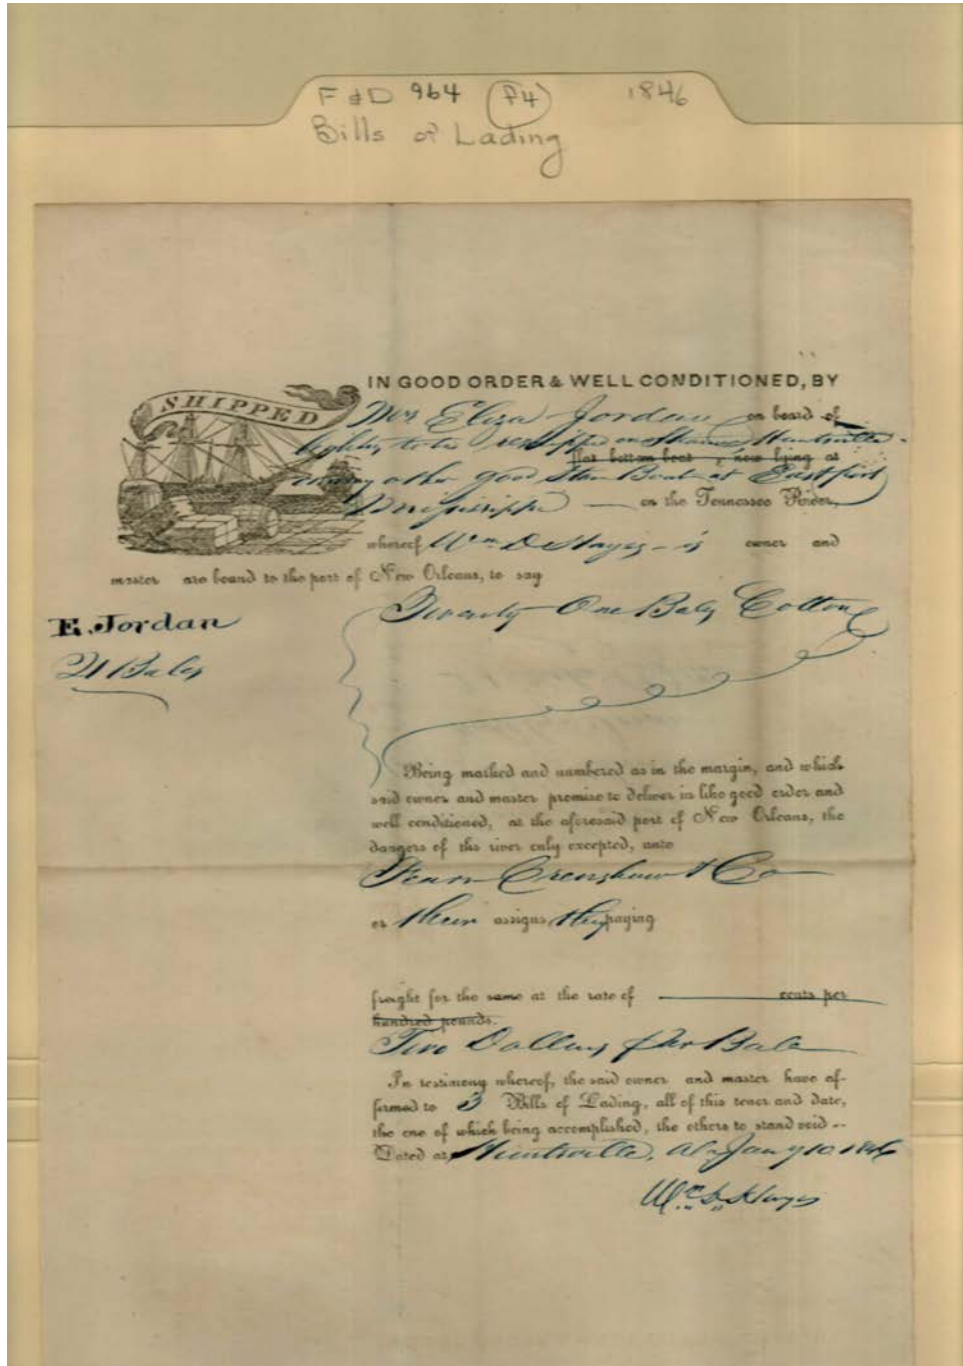 F & D 964 (P4) 1846
Bills of Lading
SHIPPED
IN GOOD ORDER & WELL CONDITIONED, BY
Mrs Eliza Jordan on board of
to be reshipped on Huntsville
flat bottom boat, now lying at
or any other good Steam Boat at Eastport
Mississippi on the Tennessee River,
whereof Wm D Hayes is owner and
master are bound to the port of New Orleans, to say
Twenty One Bales Cotton
E. Jordan
21 Bales
Being marked and numbered as in the margin, and which
said owner and master promise to deliver in like good order and
well conditioned, at the aforesaid port of New Orleans, the
dangers of the river only excepted, unto
Fearn Crenshaw & Co
or their assigns they paying
freight for the same at the rate of cents per
hundred pounds.
Two Dollars per Bale
In testimony whereof, the said owner and master have af-
firmed to 3 Bills of Lading, all of this tenor and date,
the one of which being accomplished, the others to stand void --
Dated at Huntsville, Ala Jany 10 1846
Wm D Hayes